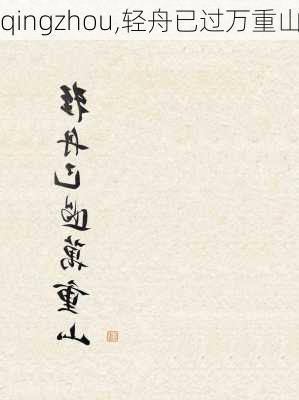 qingzhou,轻舟已过万重山
輕舟已過萬重山